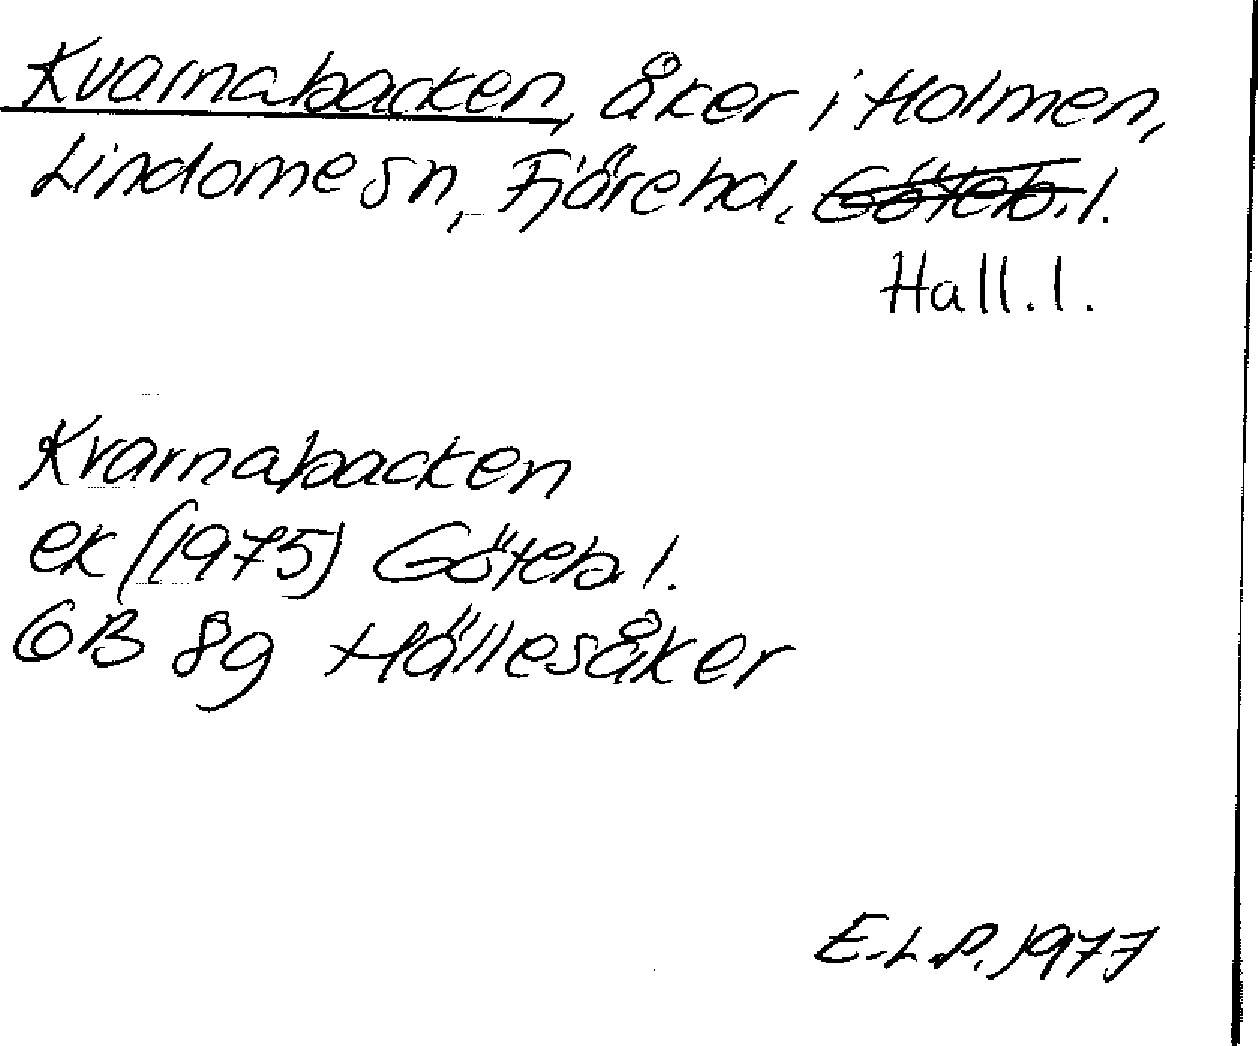 Kvarnabacken, åker i Holmen,
Lindome sn, Fjäre hd, Göteb. l.
Hall. l.
Kvarnabacken
ek (1975) Göteb l.
6B 8g Hällesåker
E.L.P. 1977